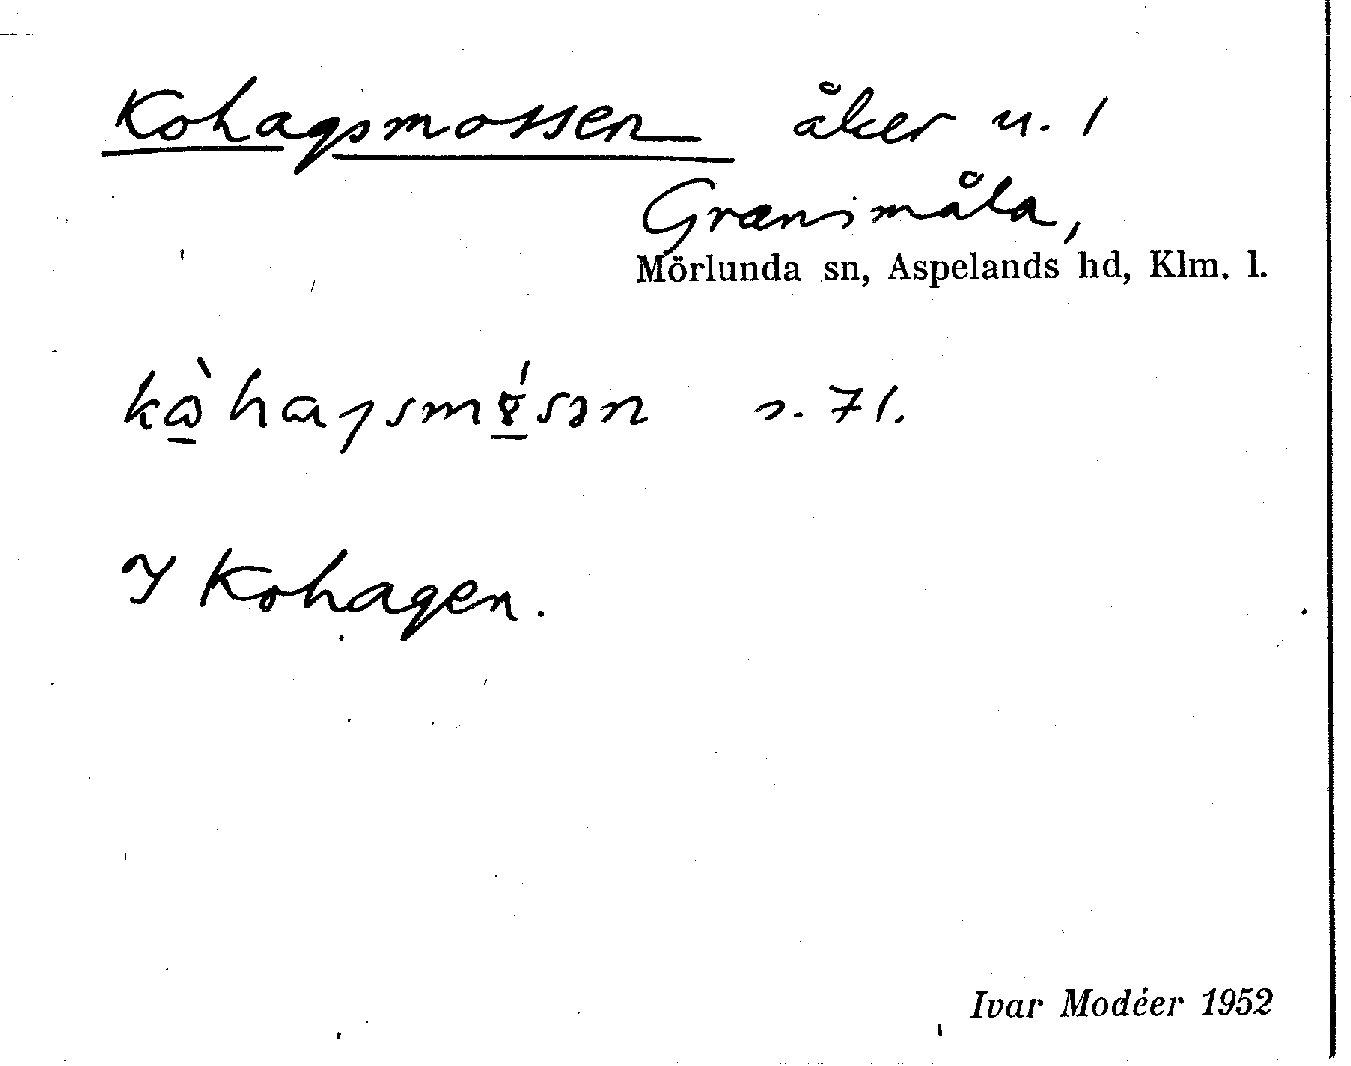 Kohagsmossen åker u. 1
Gransmåla,
Mörlunda sn, Aspelands hd, Klm. l.
s. 71.
I Kohagen.
Ivar Modéer 1952